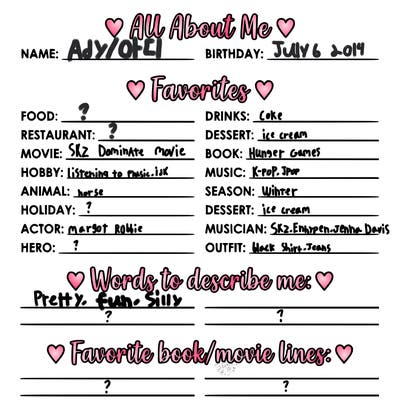 All About Me
NAME: Ady/아디 BIRTHDAY: July 6 2014
Favorites
FOOD: ? DRINKS: Coke
RESTAURANT: ? DESSERT: ice cream
MOVIE: SKZ Dominate movie BOOK: Hunger Games
HOBBY: listening to music.idk MUSIC: K-pop.Jpop
ANIMAL: horse SEASON: Winter
HOLIDAY: ? DESSERT: ice cream
ACTOR: margot Robbie MUSICIAN: SKZ.Enhypen.Jenna Davis
HERO: ? OUTFIT: black shirt.Jeans
Words to describe me:
Pretty. fun. Silly
? ?
Favorite book/movie lines:
? ?